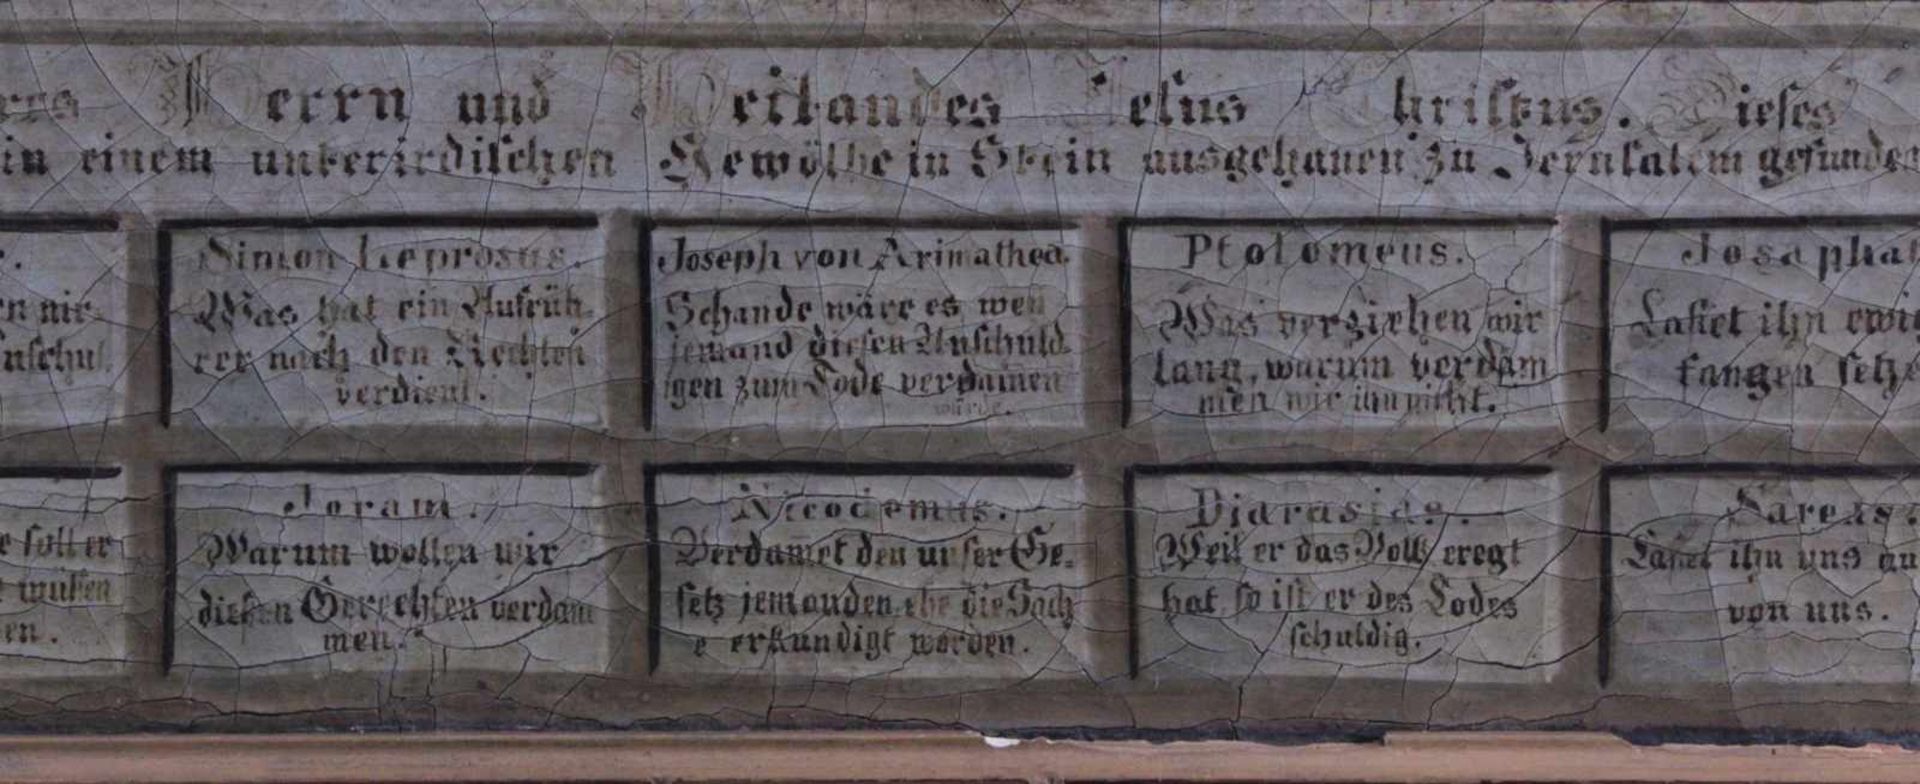 Herrn und Heilandes Jesus Christus. Dieses
in einem unterirdischen Gewölbe in Stein ausgehauen zu Jerusalem gefunden
Simon Leprosus.
Was hat ein Aufrüh-
rer nach den Rechten
verdient.
Joseph von Arimathea.
Schande wäre es wen
jemand diesen Unschuld
igen zum Tode verdamen
würde.
Ptolomeus.
Was verziehen wir
lang, warum verdam
men wir ihn nicht.
Josaphat
Lasset ihn ewig
fangen setze
Joram.
Warum wollen wir
diesen Gerechten verdam
men.
Nicodemus.
Verdamet den unser Ge-
setz jemanden ehe die Sach
e erkundigt worden.
Djarasias.
Weil er das Volk eregt
hat, so ist er des Todes
schuldig.
Sareas.
Lasset ihn uns au
von uns.
e soll er
müssen
en.